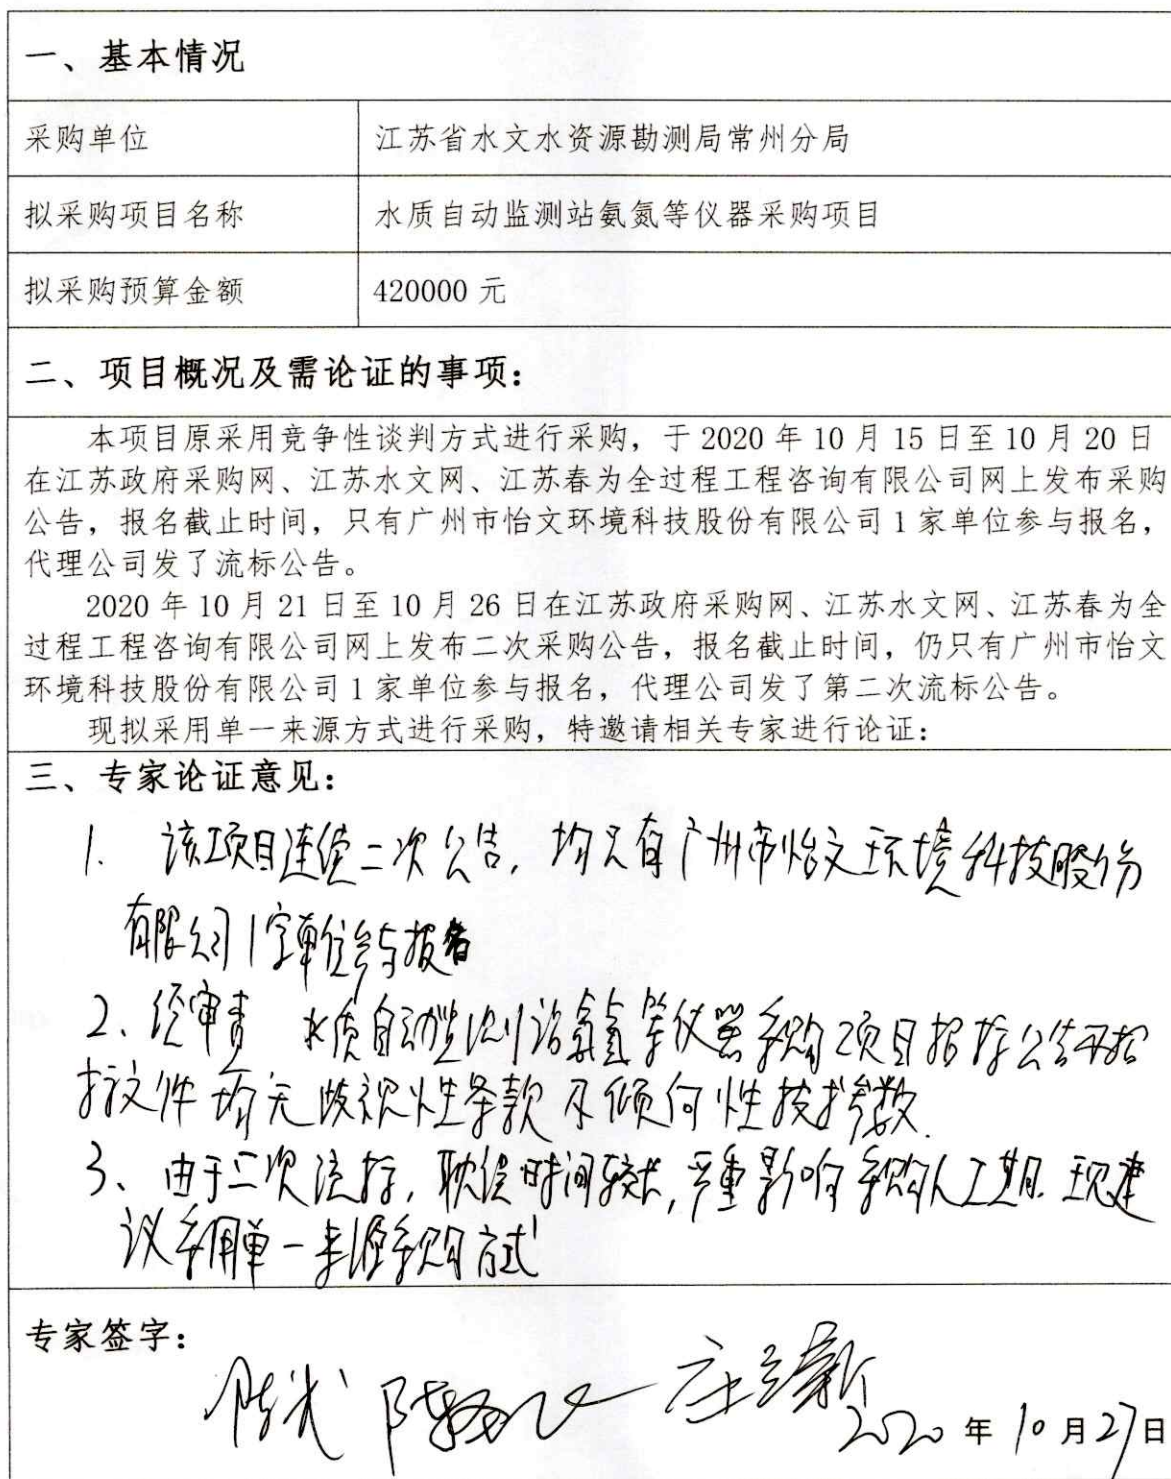 一、基本情况
采购单位 江苏省水文水资源勘测局常州分局
拟采购项目名称 水质自动监测站氨氮等仪器采购项目
拟采购预算金额 420000 元
二、项目概况及需论证的事项：
本项目原采用竞争性谈判方式进行采购，于 2020 年 10 月 15 日至 10 月 20 日
在江苏政府采购网、江苏水文网、江苏春为全过程工程咨询有限公司网上发布采购
公告，报名截止时间，只有广州市怡文环境科技股份有限公司 1 家单位参与报名，
代理公司发了流标公告。
2020 年 10 月 21 日至 10 月 26 日在江苏政府采购网、江苏水文网、江苏春为全
过程工程咨询有限公司网上发布二次采购公告，报名截止时间，仍只有广州市怡文
环境科技股份有限公司 1 家单位参与报名，代理公司发了第二次流标公告。
现拟采用单一来源方式进行采购，特邀请相关专家进行论证：
三、专家论证意见：
1. 该项目连续二次公告，均只有广州市怡文环境科技股份
有限公司1家单位参与报名
2、经审查 水质自动监测站氨氮等仪器采购项目招标公告及招
标文件均无歧视性条款及倾向性技术参数.
3、由于二次流标，耽误时间较长，严重影响采购人工期.现建
议采用单一来源采购方式
专家签字：
2020 年 10 月 27 日